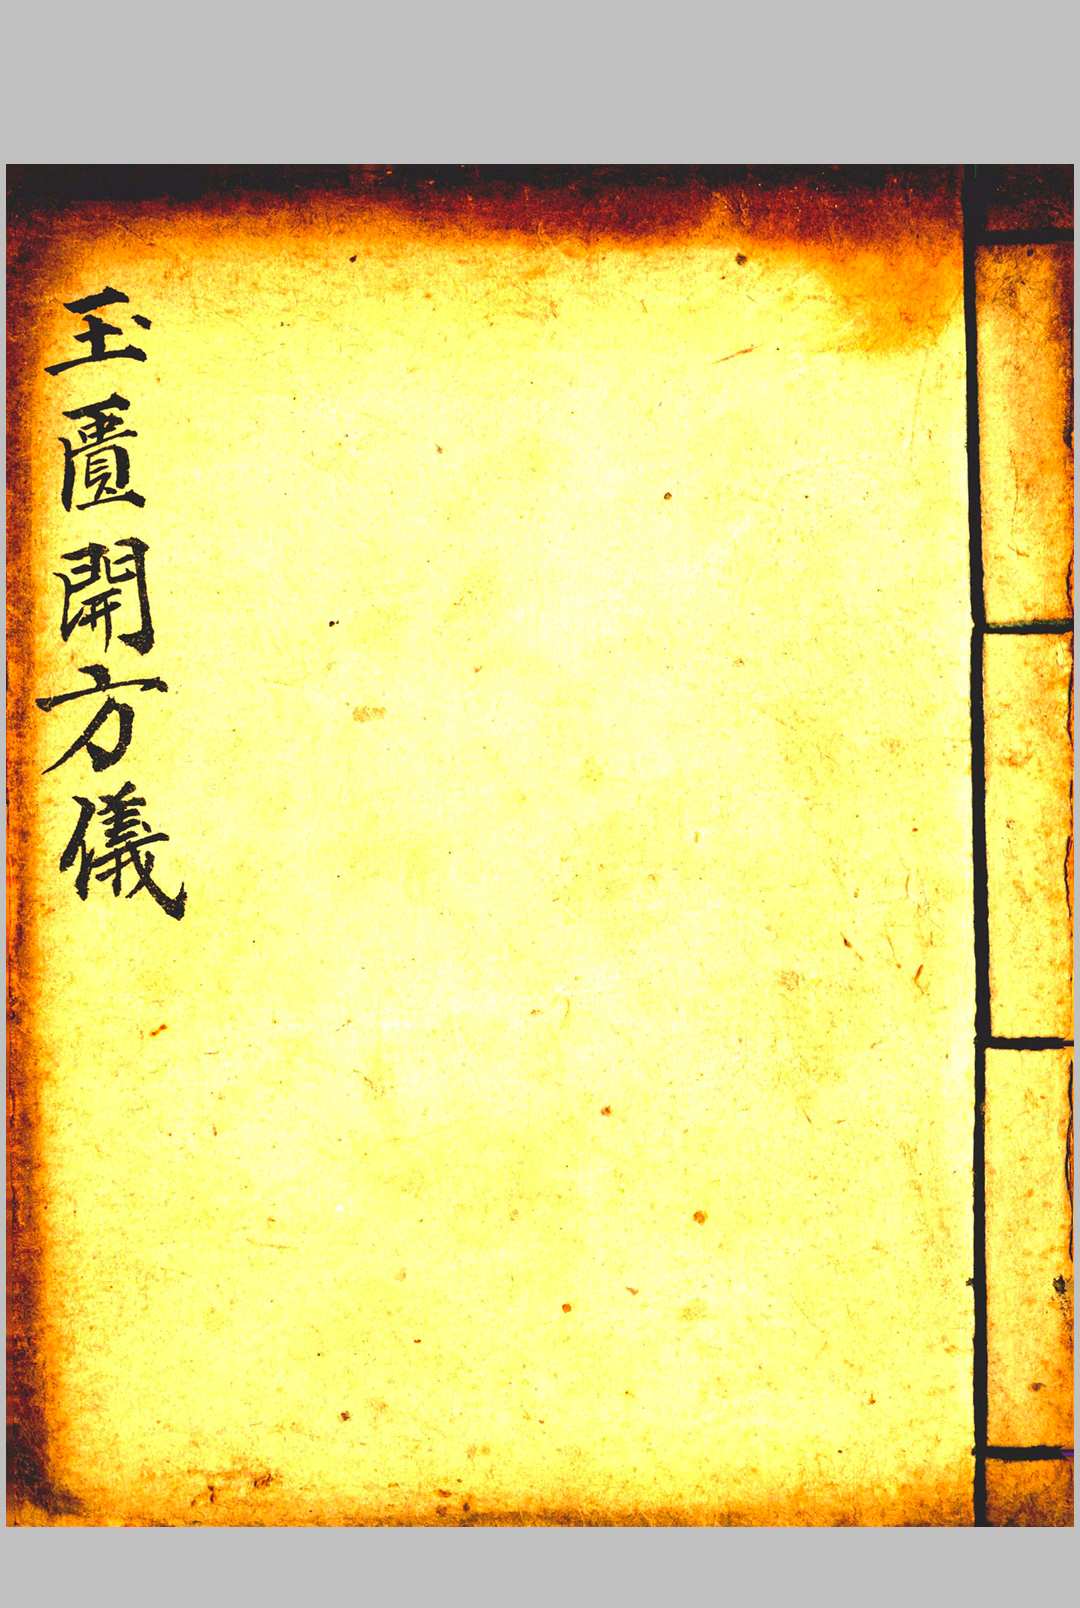 玉匱開方儀